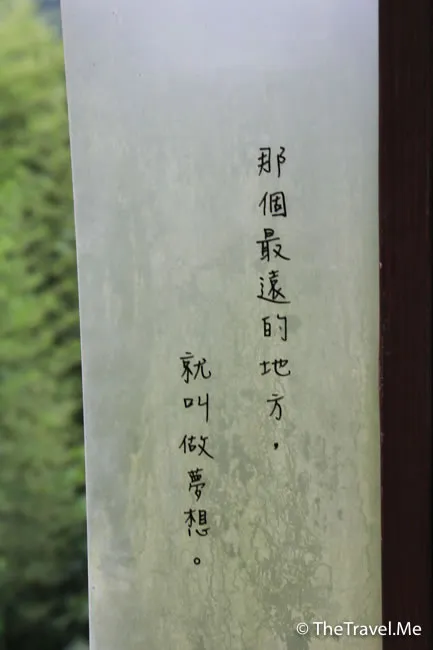 那個最遠的地方，
就叫做夢想。
© TheTravel.Me